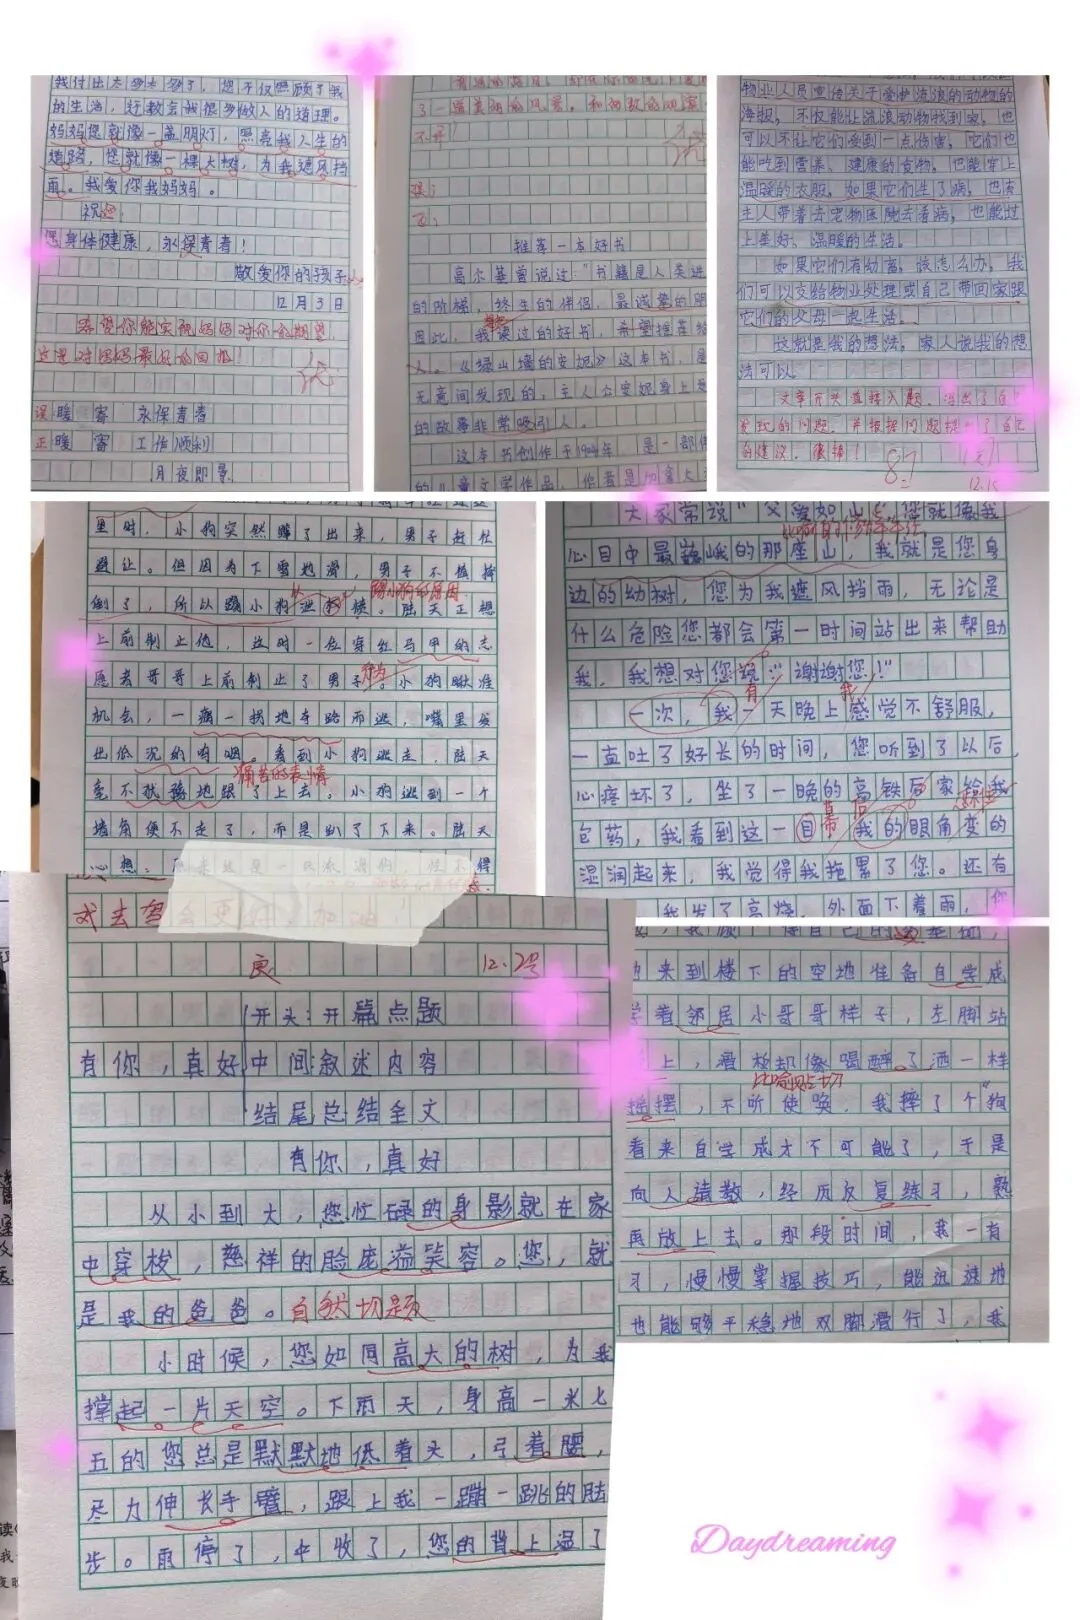 我付出太多太多了，您不仅照顾了我
的生活，还教会我很多做人的道理。
妈妈您就像一盏明灯，照亮我人生的
道路，您就像一棵大树，为我遮风挡
雨。我爱你我妈妈。
祝您：
身体健康，永保青春！
敬爱你的孩子
12月3日
希望你能实现妈妈对你的期望，
这是对妈妈最好的回报！
误 暖 寄 永保青春
正 暖 寄 工作顺利
月夜即
推荐一本好书
高尔基曾说过："书籍是人类进
的阶梯，终生的伴侣，最诚挚的朋
因此，我读过的好书，希望推荐给
《绿山墙的安妮》这本书，是
无意间发现的，主人公安妮身上发
的故事非常吸引人。
这本书创作于1904年，是一部
的儿童文学作品，作者是加拿大
物业人员宣传关于爱护流浪的动物的
海报，不仅能让流浪动物找到家，也
可以不让它们受到一点伤害，它们也
能吃到营养、健康的食物，也能穿上
温暖的衣服，如果它们生了病，也有
主人带着去宠物医院去看病，也能过
上美好、温暖的生活。
如果它们有幼崽，该怎么办，我
们可以交给物业处理或自己带回家跟
它们的父母一起生活。
这就是我的想法，家人说我的想
法可以。
文章开头直接入题，
发现的问题，并根据问题提 了自己
的建议。很棒！
87
12.15
里时，小狗突然蹿了出来，男子赶忙
避让。但因为下雪地滑，男子不慎摔
倒了，所以踢小狗泄愤。陆天正想
踢小狗的原因
上前制止他，这时一位穿红马甲的志
愿者哥哥上前制止了男子。小狗瞅准
机会，一瘸一拐地夺路而逃，嘴里发
出低沉的呜咽。看到小狗逃走，陆天
痛苦的表情
毫不犹豫地跟了上去，小狗逃到一个
墙角便不走了，而是趴了下来。陆天
心想：
大家常说"父爱如山"，您就像我
心目中最巍峨的那座山，我就是您身
边的幼树，您为我遮风挡雨，无论是
什么危险您都会第一时间站出来帮助
我，我想对您说："谢谢您！"
一次，我一天晚上感觉不舒服，
有
我
一直吐了好长的时间，您听到了以后，
心疼坏了，坐了一晚的高铁后家给我
包药，我看到这一目，我的眼角变的
幕 后
湿润起来，我觉得我拖累了您。还有
我发了高烧，外面下着雨，您
良
12.2号
开头：开篇点题
有你，真好 中间：叙述内容
结尾总结全文
有你，真好
从小到大，您忙碌的身影就在家
中穿梭，慈祥的脸庞溢笑容。您，就
是我的爸爸。自然切题
小时候，您如同高大的树，为我
撑起一片天空。下雨天，身高一米七
五的您总是默默地低着头，弓着腰，
尽力伸长手臂，跟上我一蹦一跳的脚
步。雨停了，伞收了，您的背上湿了
来到楼下的空地准备自学成
学着邻居小哥哥样子，左脚站
上，滑板却像喝醉了酒一样
比喻贴切
摇摆，不听使唤，我摔了个"狗
看来自学成才不可能了，于是
向人请教，经历反复练习，熟
再放上去。那段时间，我一有
习，慢慢掌握技巧，能迅速地
也能够平稳地双脚滑行了，我
Daydreaming